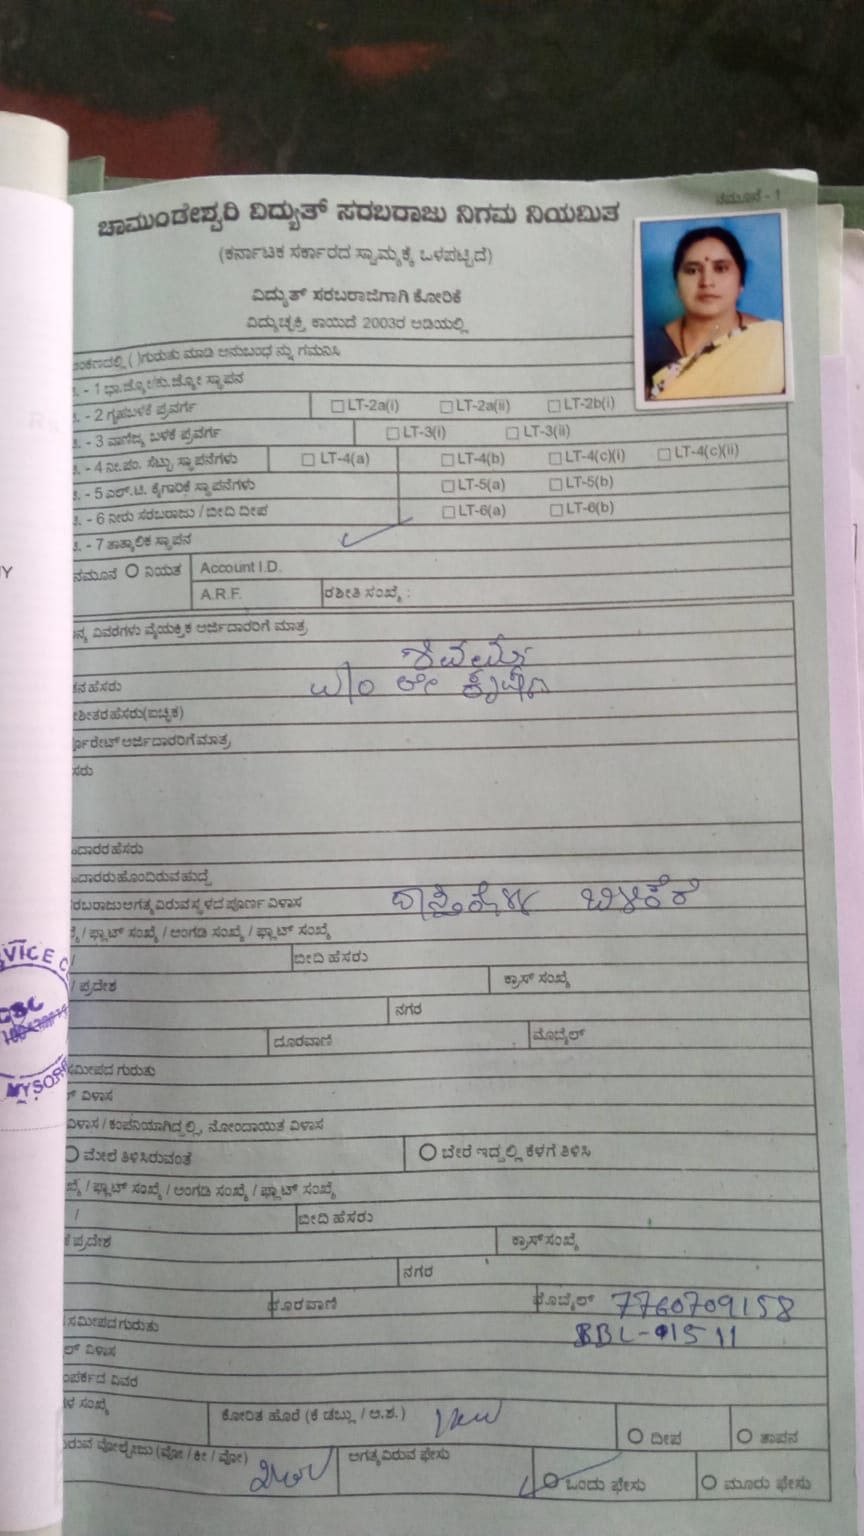 ನಮೂನೆ - 1
ಚಾಮುಂಡೇಶ್ವರಿ ವಿದ್ಯುತ್ ಸರಬರಾಜು ನಿಗಮ ನಿಯಮಿತ
(ಕರ್ನಾಟಕ ಸರ್ಕಾರದ ಸ್ವಾಮ್ಯಕ್ಕೆ ಒಳಪಟ್ಟಿದೆ)
ವಿದ್ಯುತ್ ಸರಬರಾಜಿಗಾಗಿ ಕೋರಿಕೆ
ವಿದ್ಯುಚ್ಛಕ್ತಿ ಕಾಯಿದೆ 2003ರ ಅಡಿಯಲ್ಲಿ
ಗುರುತು ಮಾಡಿ ಅನುಬಂಧ ನ್ನು ಗಮನಿಸಿ
- 1 ಭಾ.ಜ್ಯೋ/ಕು.ಜ್ಯೋ ಸ್ಥಾಪನ
- 2 ಗೃಹಬಳಕೆ ಪ್ರವರ್ಗ LT-2a(i) LT-2a(ii) LT-2b(i)
- 3 ವಾಣಿಜ್ಯ ಬಳಕೆ ಪ್ರವರ್ಗ LT-3(i) LT-3(ii)
- 4 ನೀ.ಪಂ. ಸೆಟ್ಟು ಸ್ಥಾಪನೆಗಳು LT-4(a) LT-4(b) LT-4(c)(i) LT-4(c)(ii)
- 5 ಎಲ್.ಟಿ. ಕೈಗಾರಿಕೆ ಸ್ಥಾಪನೆಗಳು LT-5(a) LT-5(b)
- 6 ನೀರು ಸರಬರಾಜು / ಬೀದಿ ದೀಪ LT-6(a) LT-6(b)
- 7 ತಾತ್ಕಾಲಿಕ ಸ್ಥಾಪನ
ನಮೂನೆ ನಿಯತ Account I.D.
A.R.F. ರಶೀತಿ ಸಂಖ್ಯೆ :
ವಿವರಗಳು ವೈಯಕ್ತಿಕ ಅರ್ಜಿದಾರರಿಗೆ ಮಾತ್ರ
ಹೆಸರು W/O ಲೇ
ಹೆಸರು(ಐಚ್ಛಿಕ)
ಅರ್ಜಿದಾರರಿಗೆ ಮಾತ್ರ
ಹೆಸರು
ಹೊಂದಿರುವ ಹುದ್ದೆ
ಅಗತ್ಯವಿರುವ ಸ್ಥಳದ ಪೂರ್ಣ ವಿಳಾಸ ಬಿಳಿಕೆರೆ
/ ಫ್ಲಾಟ್ ಸಂಖ್ಯೆ / ಅಂಗಡಿ ಸಂಖ್ಯೆ / ಫ್ಲಾಟ್ ಸಂಖ್ಯೆ
/ ಬೀದಿ ಹೆಸರು
/ ಪ್ರದೇಶ ಕ್ರಾಸ್ ಸಂಖ್ಯೆ
ನಗರ
ದೂರವಾಣಿ ಮೊಬೈಲ್
ಸಮೀಪದ ಗುರುತು
ವಿಳಾಸ
ವಿಳಾಸ / ಕಂಪನಿಯಾಗಿದ್ದಲ್ಲಿ, ನೋಂದಾಯಿತ ವಿಳಾಸ
ಮೇಲೆ ತಿಳಿಸಿರುವಂತೆ ಬೇರೆ ಇದ್ದಲ್ಲಿ ಕೆಳಗೆ ತಿಳಿಸಿ
/ ಫ್ಲಾಟ್ ಸಂಖ್ಯೆ / ಅಂಗಡಿ ಸಂಖ್ಯೆ / ಫ್ಲಾಟ್ ಸಂಖ್ಯೆ
/ ಬೀದಿ ಹೆಸರು
ಪ್ರದೇಶ ಕ್ರಾಸ್ ಸಂಖ್ಯೆ
ನಗರ
ದೂರವಾಣಿ ಮೊಬೈಲ್ 7760709158
ಸಮೀಪದ ಗುರುತು BBL-01511
ವಿಳಾಸ
ವಿವರ
ಸಂಖ್ಯೆ ಕೋರಿತ ಹೊರೆ (ಕೆ ಡಬ್ಲು / ಅ.ಶ.) ದೀಪ ತಾಪನ
ವೋಲ್ಟೇಜು (ವೋ / ಕೀ / ವೋ) ಅಗತ್ಯವಿರುವ ಫೇಸು ಒಂದು ಫೇಸು ಮೂರು ಫೇಸು